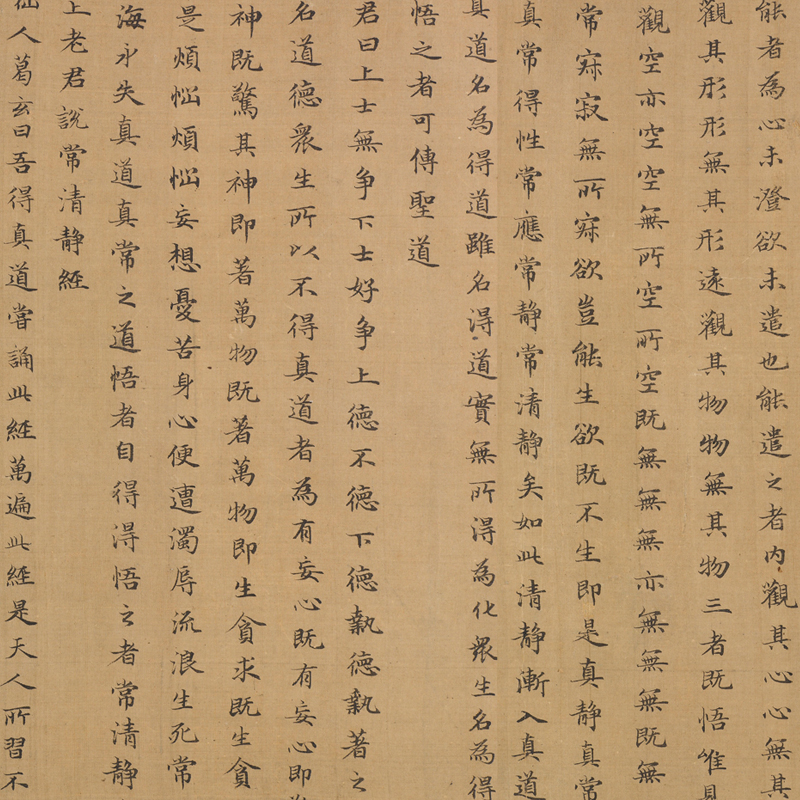 能者為心未澄欲未遣也能遣之者内觀其心心無其
觀其形形無其形遠觀其物物無其物三者既悟唯見
觀空亦空空無所空所空既無無無亦無無無既無
常寂寂無所寂欲豈能生欲既不生即是真静真常
真常得性常應常静常清静矣如此清静漸入真道
真道名為得道雖名得道實無所得為化衆生名為得
悟之者可傳聖道
君曰上士無争下士好争上德不德下德執德執著之
名道德衆生所以不得真道者為有妄心既有妄心即
神既驚其神即著萬物既著萬物即生貪求既生貪
是煩惱煩惱妄想憂苦身心便遭濁辱流浪生死常
海永失真道真常之道悟者自得得悟之者常清静
上老君說常清静經
仙人葛玄曰吾得真道嘗誦此經萬遍此經是天人所習不